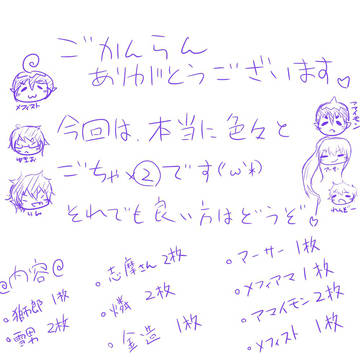 ごかんらん
ありがとうございます♡
メフィスト
アマイモン
今回は、本当に色々と
ゆきお
アーサー
ごちゃ×②です(´ω`*)
りん
それでも良い方はどうぞ♡
@内容@
・獅郎 1枚
・雪男 2枚
・志摩さん 2枚
・燐 2枚
・金造 1枚
・アーサー 1枚
・メフィアマ 1枚
・アマイモン 2枚
・メフィスト 1枚